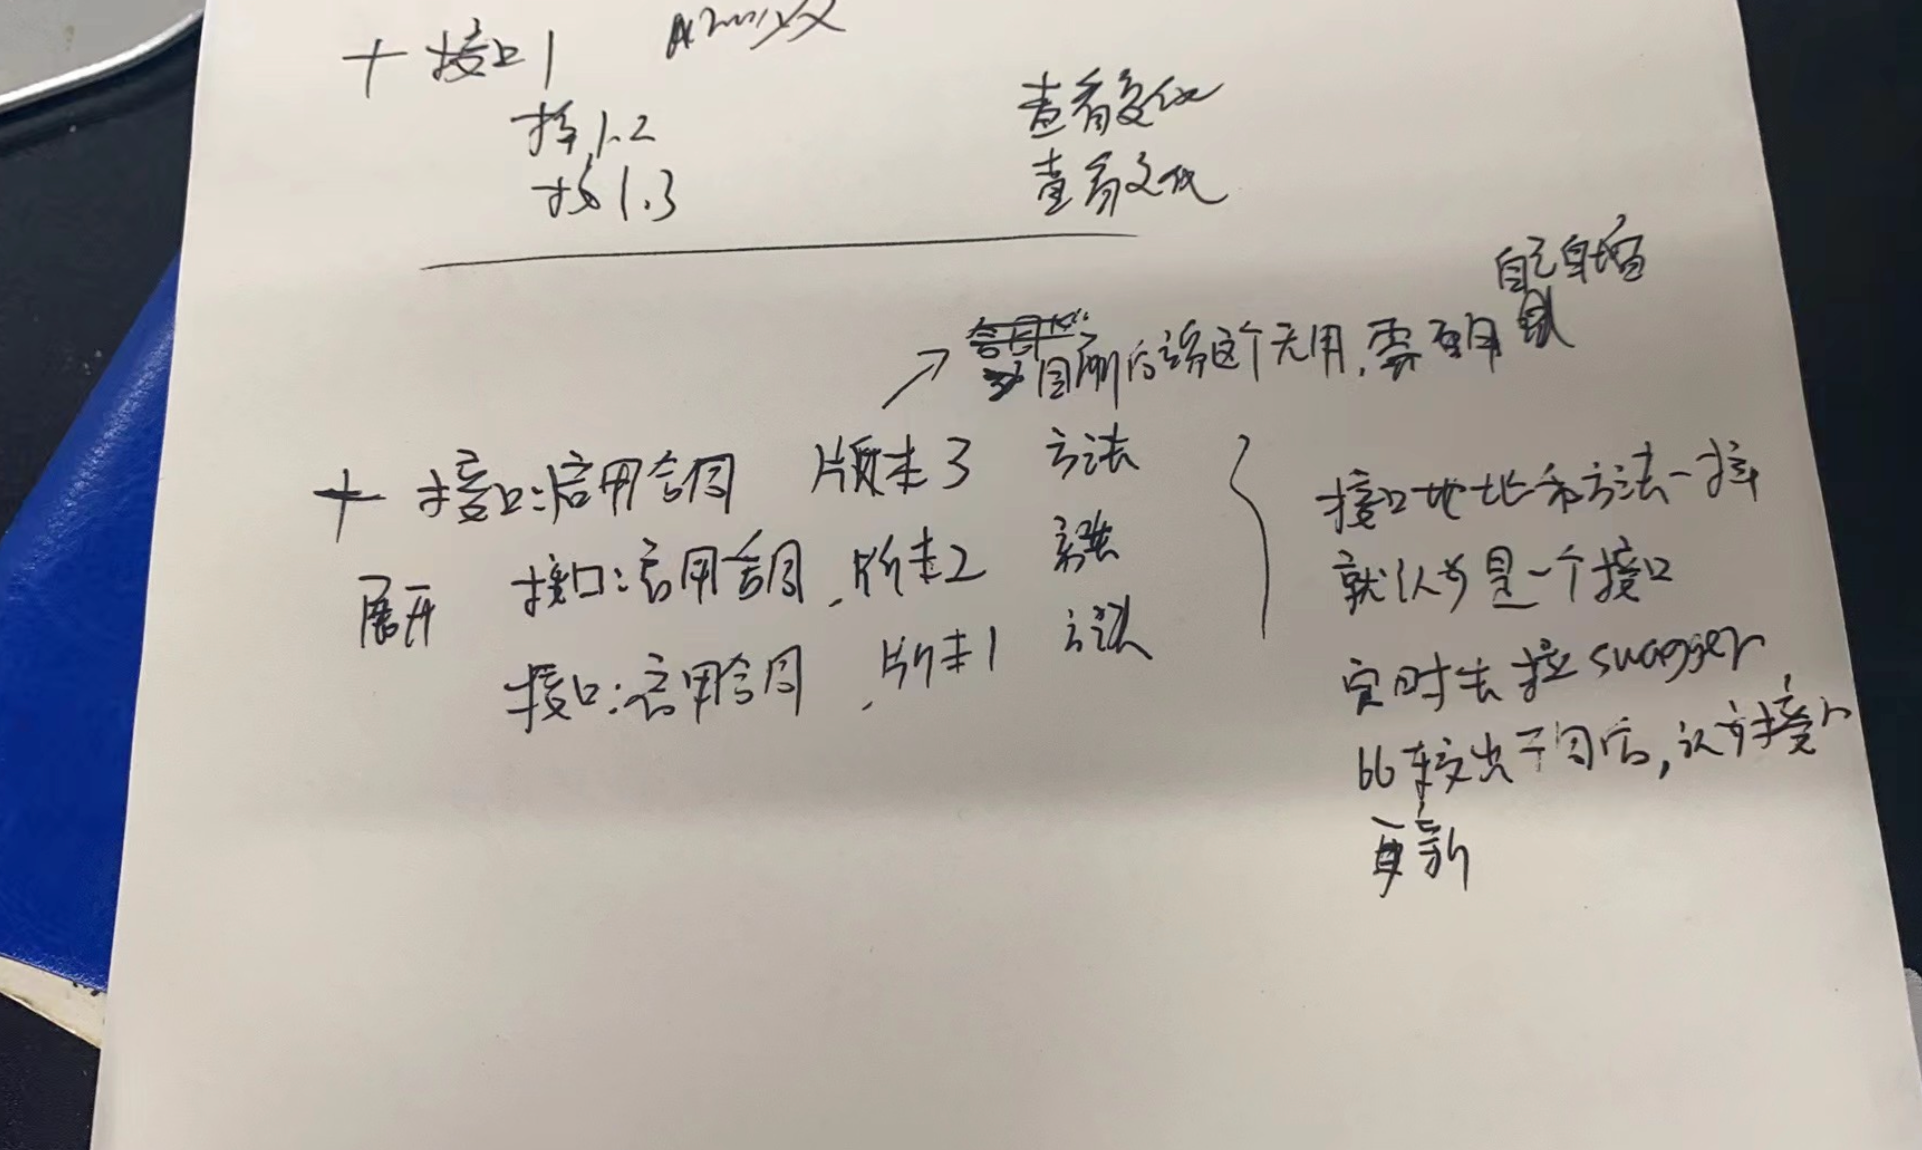 + 接口1
接 1.2 查看变化
接 1.3 查看变化
自己自增
目前后端这个无用,需要用
+ 接口:启用合同 版本3 方法
展开 接口:启用合同,版本2 方法
接口:启用合同,版本1 方法
接口地址和方法一样
就认为是一个接口
实时去拉swagger
比较出不同后,认为接口
更新